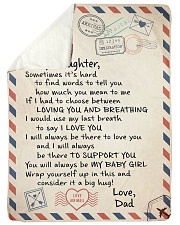 Daughter,
Sometimes it's hard
to find words to tell you
how much you mean to me
If I had to choose between
LOVING YOU AND BREATHING
I would use my last breath
to say I LOVE YOU
I will always be there to love you
and I will always
be there TO SUPPORT YOU
You will always be MY BABY GIRL
Wrap yourself up in this and
consider it a big hug!
Love,
Dad